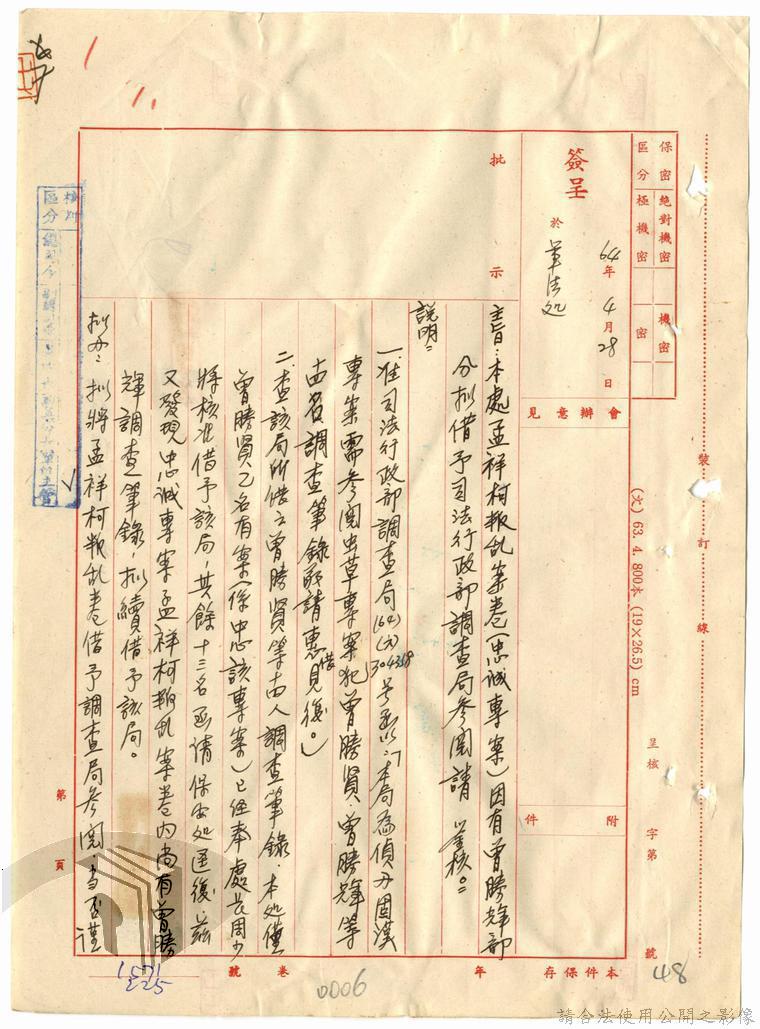 保密區分
絕對機密
極機密
機密
密
簽呈
64年4月28日
於軍法处
批示
會辦意見
附件
主旨：本處孟祥柯叛乱案卷（忠诚專案）因有曾勝輝部
分拟借予司法行政部調查局参閱請 鉴核。
說明：
一、准司法行政部調查局(64)(元)304368号函以：「本局為偵办固漢
專案需参閱虫草專案犯曾勝賢、曾勝輝等
十四名調查筆錄，敬請惠借見復。」
二、查該局所借之曾勝賢等十四人調查筆錄，本処僅
曾勝賢乙名有案（係忠诚專案）已经奉處長周少
將核准借予該局，其餘十三名函请保安処逕復，茲
又發現忠诚專案孟祥柯叛乱案卷内尚有曾勝
輝調查筆錄，拟續借予該局。
拟办：拟將孟祥柯叛乱卷借予調查局参閱，当否谨
裝訂線
(火) 63. 4. 800本 (19×26.5) cm
呈核 字第 號
48
本件保存 年
卷 號
1571
225
第 頁
0006
區分
請合法使用公開之影像